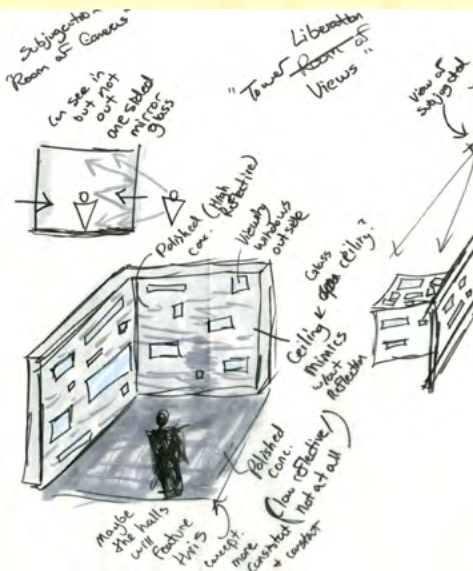 Subjugation
"Room of Cameras"
Can see in
but not
out
one sided
mirror
glass
Liberation
"Tower Room of
Views"
View of
subjugated
Polished (High
conc. Reflective)
Viewing
windows
outside
Glass
Ceiling & open ceiling?
mimics
w/out
Reflection
Polished
conc.
(low reflective/
Not at all
Maybe
the halls
will
feature
this
concept.
more
consistent
& constant